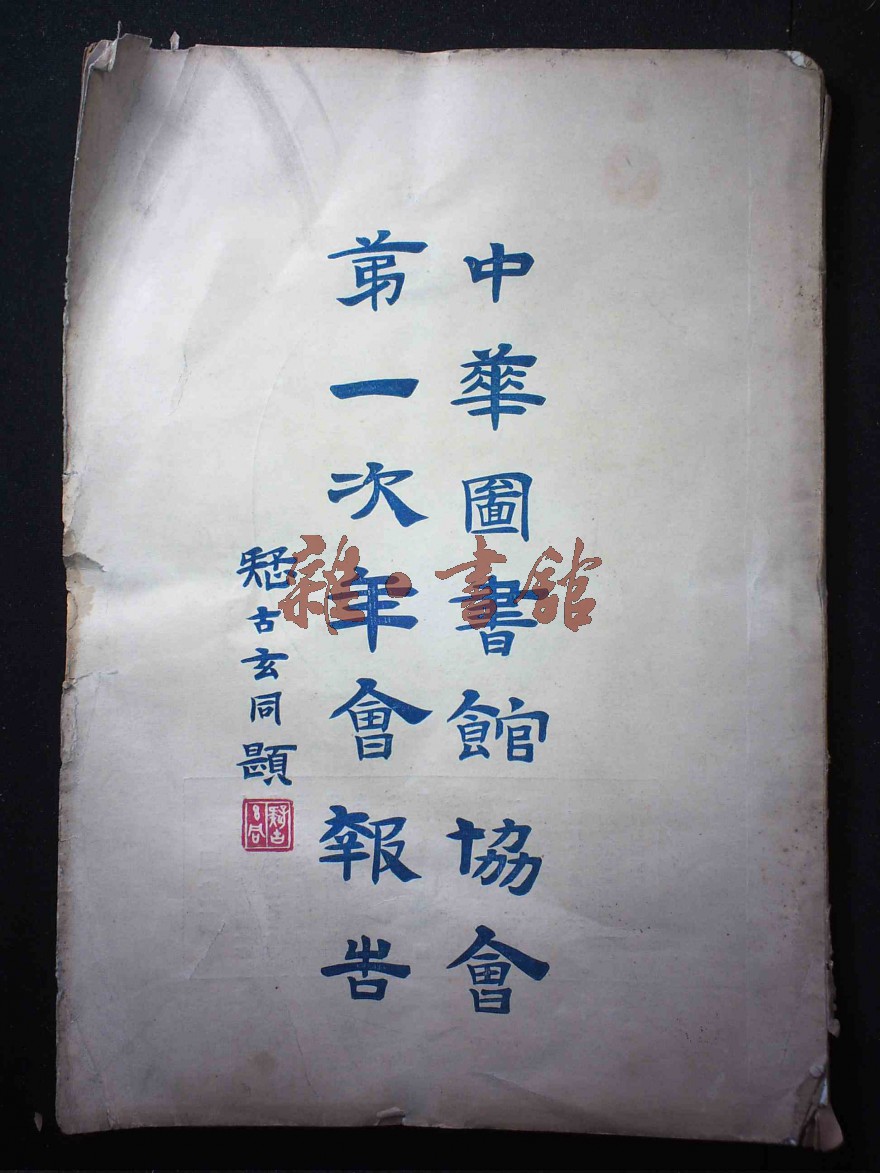 中華圖書館協會
第一次年會報告
疑古玄同題
疑古
雜·書館